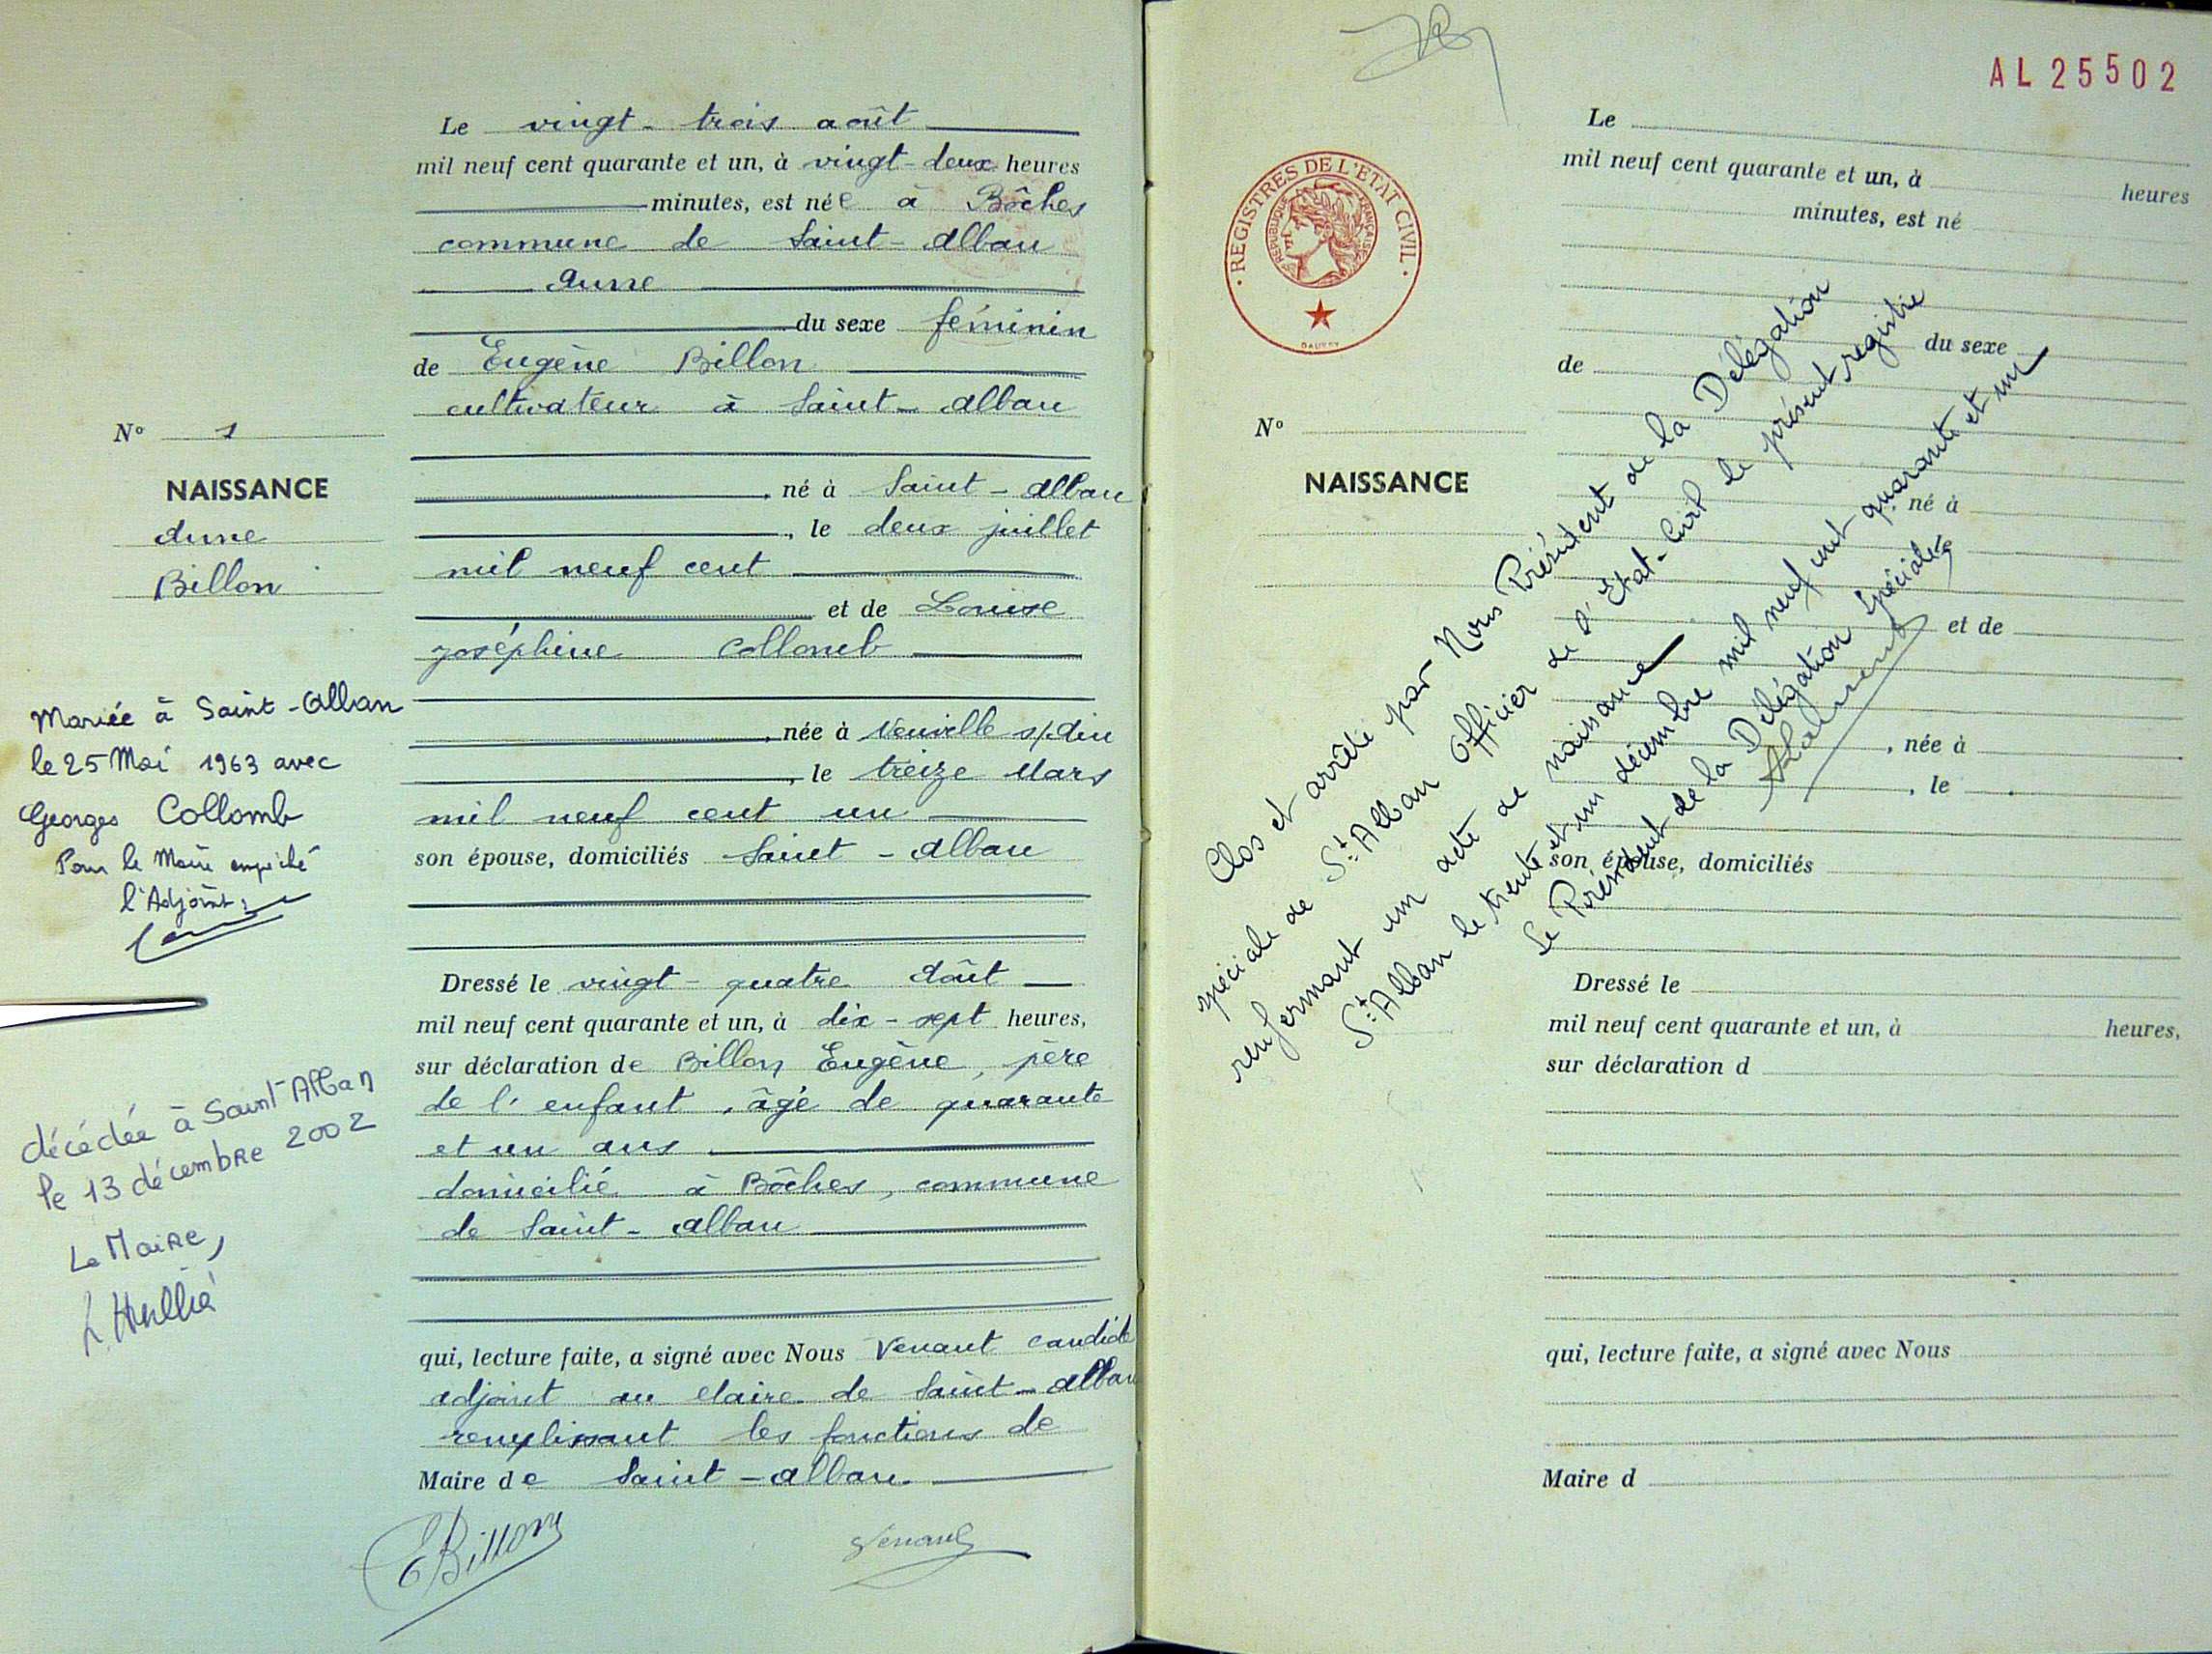 Le vingt-trois août
mil neuf cent quarante et un, à vingt-deux heures
minutes, est née à Bôches
commune de Saint-Alban
Anne
du sexe féminin
de Eugène Billon
cultivateur à Saint-Alban
né à Saint-Alban
, le deux juillet
mil neuf cent
et de Louise
Joséphine Collomb
, née à Neuville s/Ain
, le treize Mars
mil neuf cent un
son épouse, domiciliés Saint-Alban
Dressé le vingt-quatre Août
mil neuf cent quarante et un, à dix-sept heures,
sur déclaration de Billon Eugène, père
de l'enfant, âgé de quarante
et un ans
domicilié à Bôches, commune
de Saint-Alban
qui, lecture faite, a signé avec Nous Venant Candide
adjoint au Maire de Saint-Alban
remplissant les fonctions de
Maire de Saint-Alban.
EBillon
Venant
N° 1
NAISSANCE
Anne
Billon
Mariée à Saint-Alban
le 25 Mai 1963 avec
Georges Collomb
Pour le Maire empêché
l'Adjoint :
décédée à Saint Alban
le 13 décembre 2002
Le Maire,
AL 25502
REGISTRES DE L'ETAT CIVIL
REPUBLIQUE FRANÇAISE
N°
NAISSANCE
Le
mil neuf cent quarante et un, à heures
minutes, est né
du sexe
de
né à
et de
, née à
, le
son épouse, domiciliés
Dressé le
mil neuf cent quarante et un, à heures,
sur déclaration d
qui, lecture faite, a signé avec Nous
Maire d
Clos et arrêté par Nous Président de la Délégation
spéciale de St Alban Officier de l'Etat-Civil le présent registre
renfermant un acte de naissance
St Alban le trente et un décembre mil neuf cent quarante et un
Le Président de la Délégation spéciale,